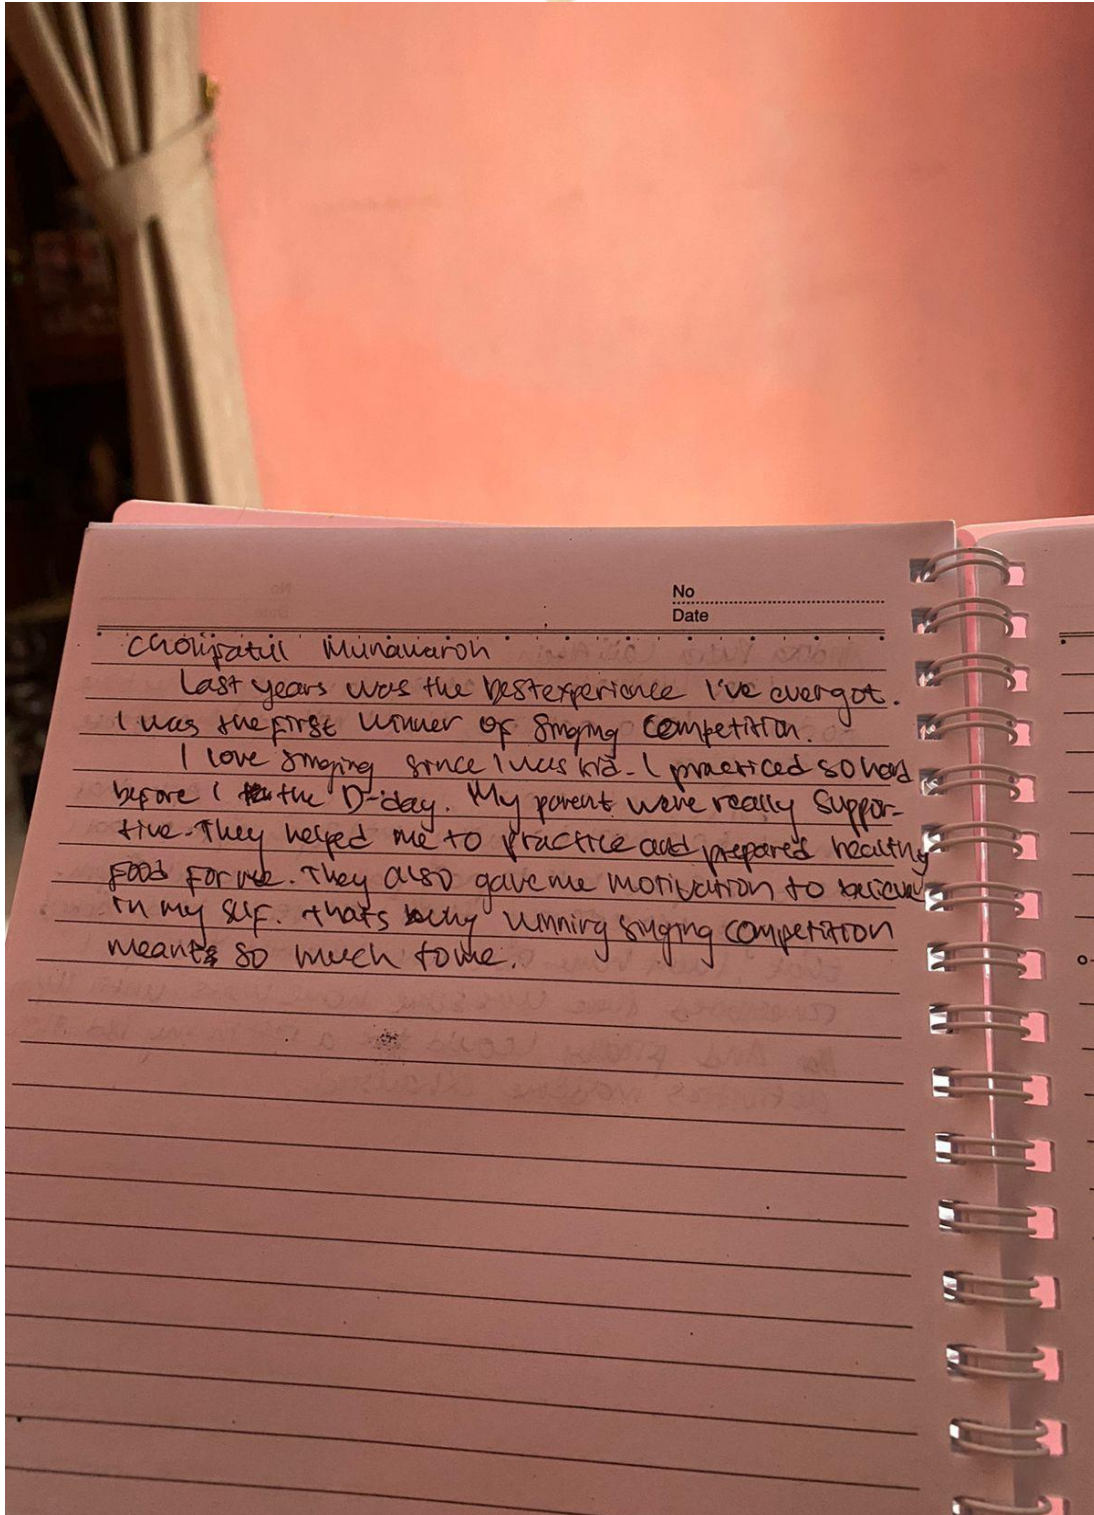 No
Date
Cholifatul Munawaroh
Last years was the best experience I've ever got.
I was the first winner of singing competition.
I love singing since I was kid. I practiced so hard
before I the D-day. My parent were really suppor-
tive. They helped me to practice and prepared healthy
food for me. They also gave me motivation to believe
in my self. thats why winning singing competition
meants so much to me.